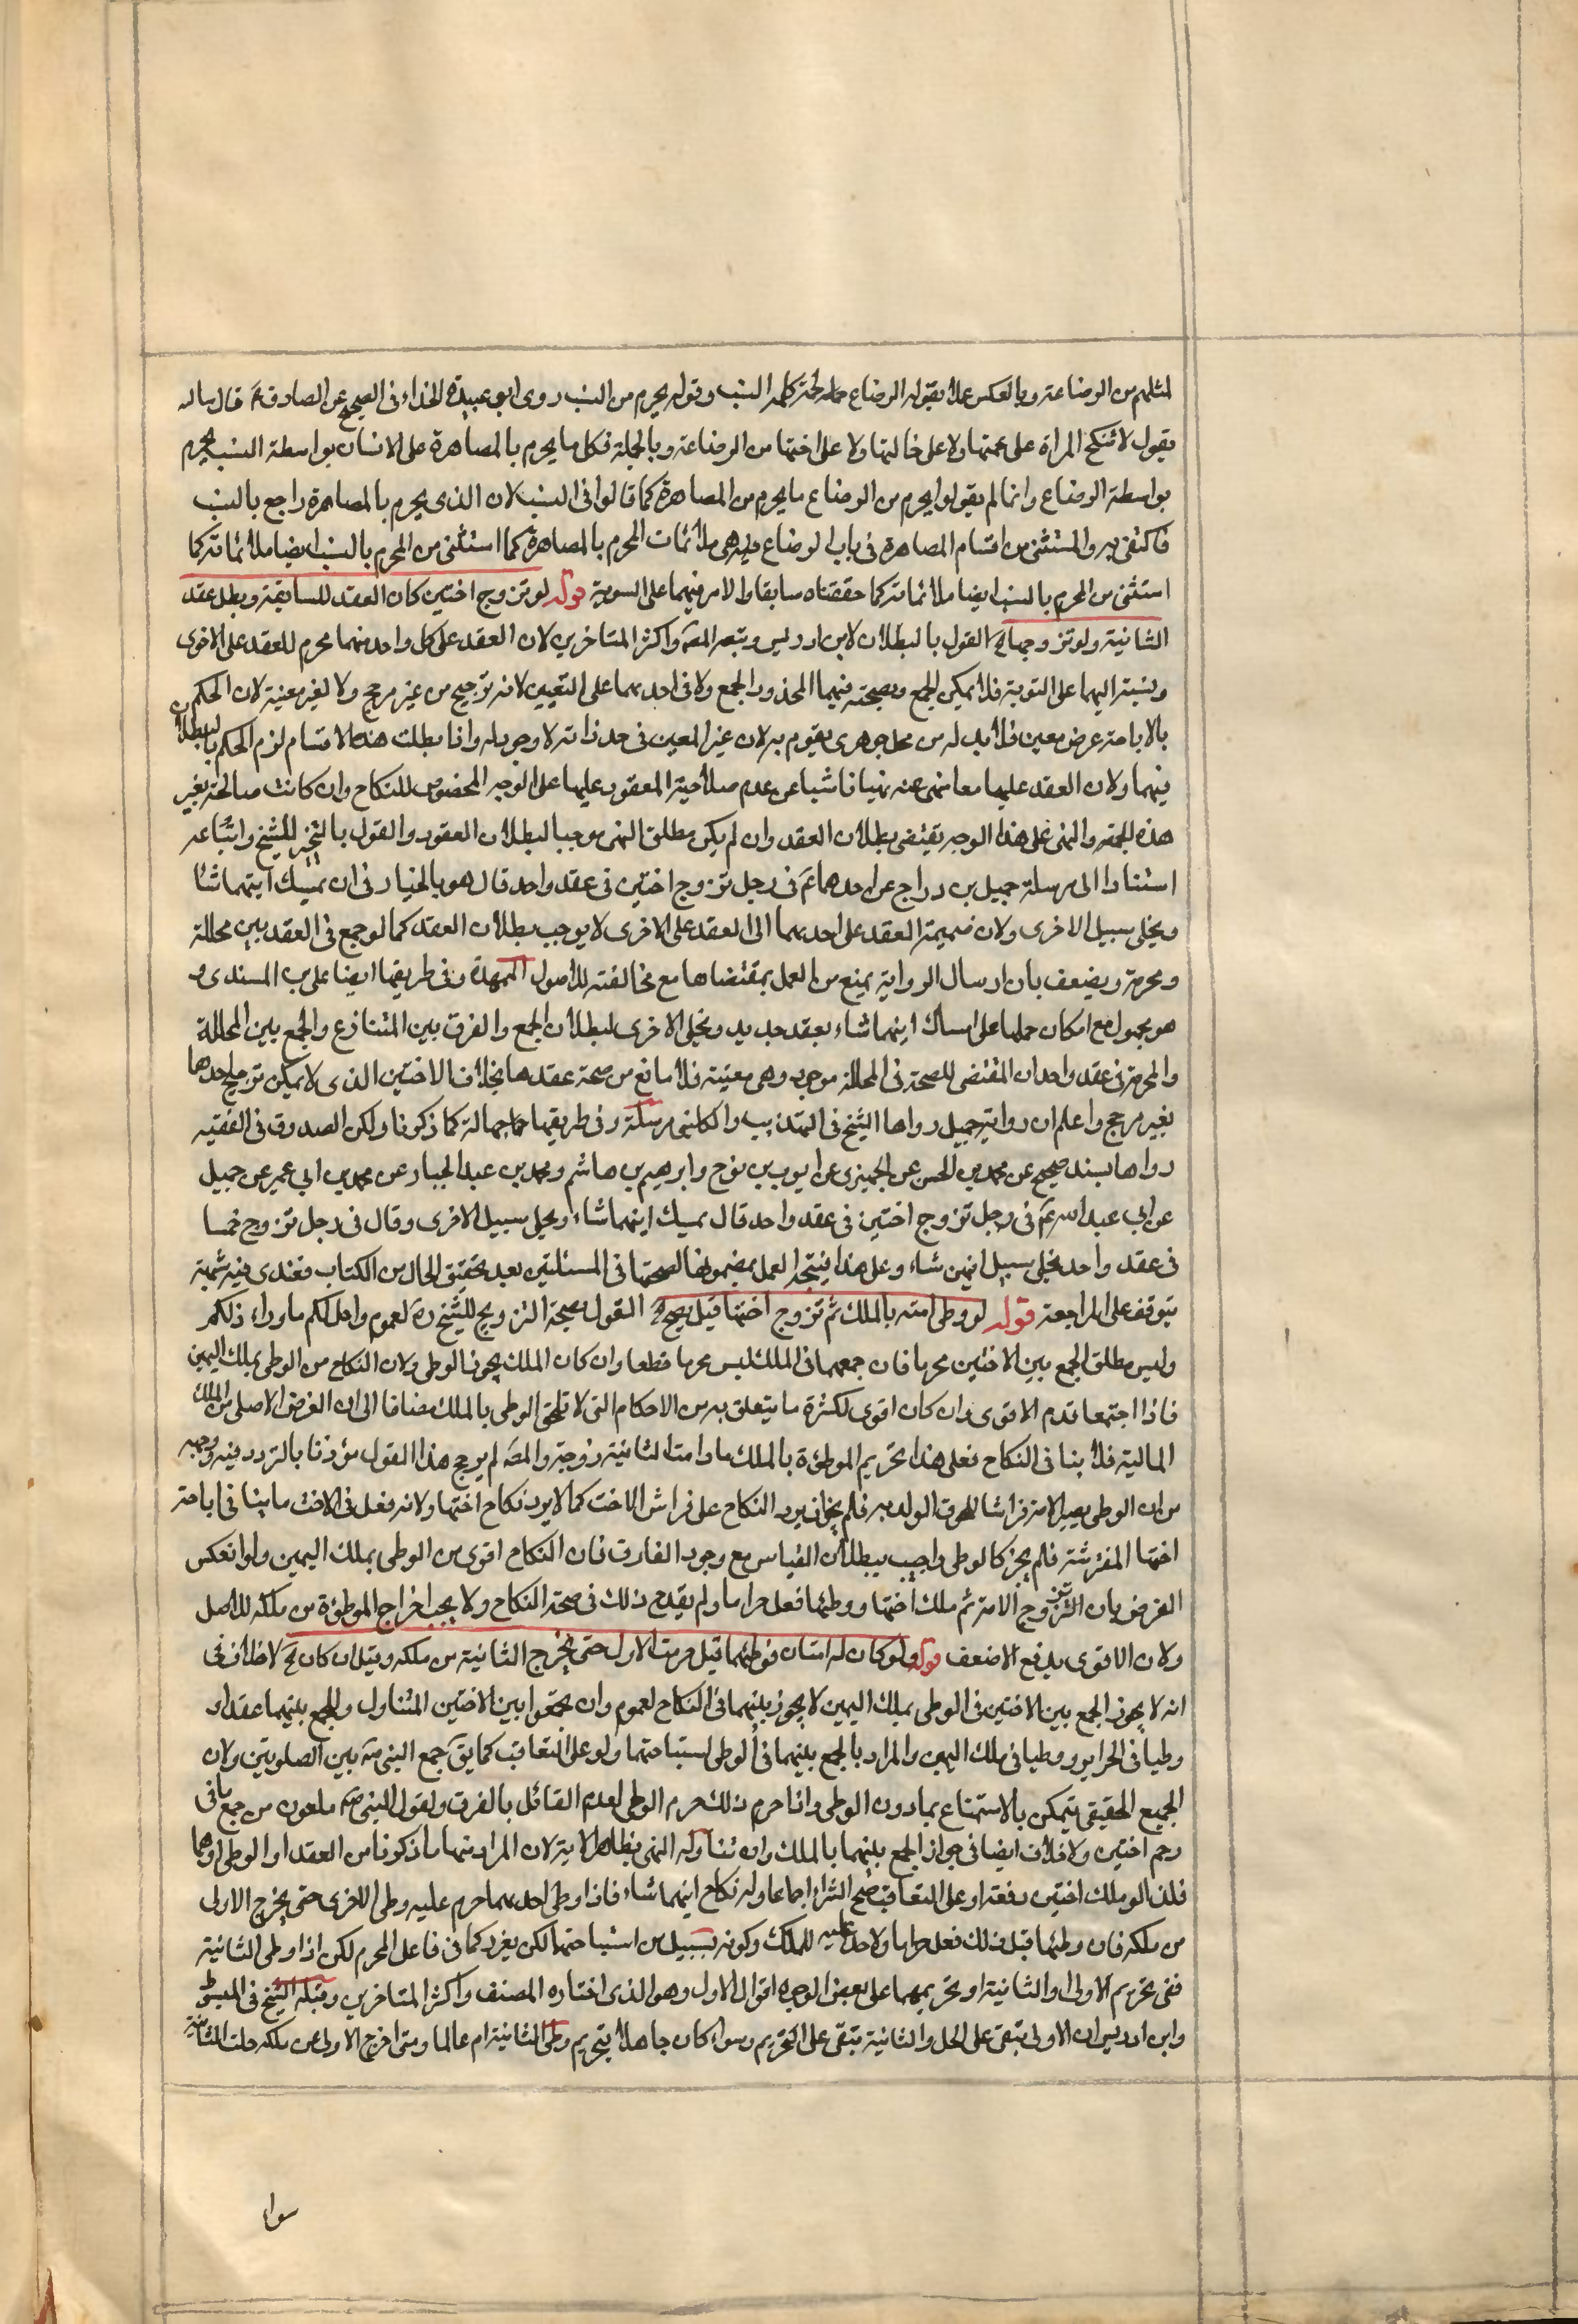 لمثلهم من الرضاعة وبالعكس عملا بقوله الرضاع لحمة كلحمة النسب وقوله يحرم من النسب روى ابو عبيدة الحذاء فى الصحيح عن الصادق ع قال سالته
يقول لا تنكح المراة على عمتها ولا على خالتها ولا على اختها من الرضاعة وبالجملة فكل ما يحرم بالمصاهرة على الانسان بواسطة النسب يحرم
بواسطة الرضاع وانما لم يقولوا يحرم من الرضاع ما يحرم من المصاهرة كما قالوا فى النسب لان الذى يحرم بالمصاهرة راجع بالنسب
فاكتفى به والمستثنى من اقسام المصاهرة فى باب الرضاع هى ملائمات المحرم بالمصاهرة كما استثنى من المحرم بالنسب ايضا ملائماته كما
استثنى من المحرم بالنسب ايضا ملائماته كما حققناه سابقا والامر فيهما على السوية قوله لو تزوج اختين كان العقد للسابقة وبطل عقد
الثانية ولو تزوجهما الخ القول بالبطلان لابن ادريس وتبعه المصَ واكثر المتاخرين لان العقد على كل واحد منهما محرم للعقد على الاخرى
ونسبته اليهما على السوية فلا يمكن الجمع وبصحته فيهما المحذور الجمع ولا فى احديهما على التعيين لانه ترجيح من غير مرجح ولا لغير معينة لان الحكم
بالاباحة عرض معين فلا بد له من محل جوهرى يقوم به لان غير المعين فى حد ذاته لا وجود له واذا بطلت هذه الاقسام لزم الحكم بالبطلان
فيهما ولان العقد عليهما معا نهى عنه نهيا ناشيا عن عدم صلاحية المعقود عليها على الوجه المخصوص للنكاح وان كانت صالحة بغير
هذه الجهة والنهى على هذا الوجه يقتضى بطلان العقد وان لم يكن مطلق النهى موجبا لبطلان العقود والقول بالتخير للشيخ واتباعه
استنادا الى مرسلة جميل بن دراج عن احدهما عَ فى رجل تزوج اختين فى عقد واحد قال هو بالخيار فى ان يمسك ايتهما شاء
ويخلى سبيل الاخرى ولان ضميمة العقد على احديهما الى العقد على الاخرى لا يوجب بطلان العقد كما لو جمع فى العقد بين محللة
ومحرمة ويضعف بان ارسال الرواية يمنع من العمل بمقتضاها مع مخالفته للاصول الممهدة وفى طريقها ايضا على بن السندى و
هو مجهول مع امكان حملها على امساك ايتهما شاء بعقد جديد ويخلى الاخرى لبطلان الجمع والفرق بين المتنازع والجمع بين المحللة
والمحرمة فى عقد واحد ان المقتضى للصحة فى المحللة موجود وهى معينة فلا مانع من صحة عقدها بخلاف الاختين الذى لا يمكن ترجيح احدها
بغير مرجح واعلم ان رواية جميل رواها الشيخ فى التهذيب والكلينى مرسلة وفى طريقهما جهالة كما ذكرنا ولكن الصدوق فى الفقيه
رواها بسند صحيح عن محمد بن الحسن عن الحميرى عن ايوب بن نوح وابرهيم بن هاشم ومحمد بن عبد الجبار عن محمد بن ابى عمير عن جميل
عن ابى عبد الله عَ فى رجل تزوج اختين فى عقد واحد قال يمسك ايتهما شاء ويخلى سبيل الاخرى وقال فى رجل تزوج خمسا
فى عقد واحد يخلى سبيل ايتهن شاء وعلى هذا فيتجه العمل بمضمونها لصحتها فى المسئلتين بعد تحقيق الحال من الكتاب فعندى فيه شبهة
يتوقف على المراجعة قوله لو وطى امته بالملك ثم تزوج اختها قيل يصح الخ القول بصحة التزويج للشيخ رهَ لعموم واحل لكم ما وراء ذلكم
وليس مطلق الجمع بين الاختين محرما فان جمعهما فى الملك ليس محرما قطعا وان كان الملك يجوز الوطى ولان النكاح من الوطى بملك اليمين
فاذا اجتمعا قدم الاقوى وان كان اقوى لكثرة ما يتعلق به من الاحكام التى لا تلحق الوطى بالملك مضافا الى ان الغرض الاصلى من الملك
المالية فلا ينافى النكاح فعلى هذا تحريم الموطوءة بالملك ما دامت الثانية زوجة والمصَ لم يرجح هذا القول مؤذنا بالتردد فيه ووجهه
من ان الوطى يصير الامة فراشا للحوق الولد به فلم يجز ان يرد النكاح على فراش الاخت كما لا يرد نكاح اختها ولانه فعل فى الاخت ما ينافى اباحة
اختها المفترشة فلم يجز كالوطى واجيب ببطلان القياس مع وجود الفارق فان النكاح اقوى من الوطى بملك اليمين ولو انعكس
الفرض بان التزوج الامة ثم ملك اختها ووطيها فعل حراما ولم يقدح ذلك فى صحة النكاح ولا يجب اخراج الموطوءة من ملكه للاصل
ولان الاقوى يدفع الاضعف قوله ولو كان له امتان فوطيهما قيل حرمت الاولى حتى يخرج الثانية من ملكه وقيل ان كان الخ لا خلاف فى
انه لا يجوز الجمع بين الاختين فى الوطى بملك اليمين لا يجوز بينهما فى النكاح لعموم وان تجمعوا بين الاختين المتناول والجمع بينهما عقدا و
وطيا فى الحراير ووطيا فى ملك اليمين والمراد بالجمع بينهما فى الوطى استباحتهما ولو على التعاقب كما يقَ جمع النبى صَ بين الصلوتين ولان
الجمع الحقيقى يتمكن بالاستمتاع بما دون الوطى واذا حرم ذلك حرم الوطى لعدم القائل بالفرق ولقول النبى صَ ملعون من جمع مائه فى
رحم اختين ولا خلاف ايضا فى جواز الجمع بينهما بالملك وان تناوله النهى بظاهر الاية لان المراد منها ما ذكرنا من العقد او الوطى او هما
فلذا لو ملك اختين دفعة او على التعاقب صح الشراء اجماعا وله نكاح ايتهما شاء فاذا وطى احديهما حرم عليه وطى الاخرى حتى يخرج الاولى
من ملكه فان وطئها قبل ذلك فعل حراما ولا حد عليه للملك وكونه بسبيل من استباحتها لكن يعزر كما فى فاعل المحرم لكن اذا وطى الثانية
ففى تحريم الاولى او الثانية او تحريمهما على بعض الوجوه اقوال الاول وهو الذى اختاره المصنف واكثر المتاخرين وقبله الشيخ فى المبسوط
وابن ادريس ان الاولى تبقى على الحل والثانية تبقى على التحريم وسواء كان جاهلا بتحريم وطى الثانية ام عالما ومتى اخرج الاولى عن ملكه حلت الثانية
سوا